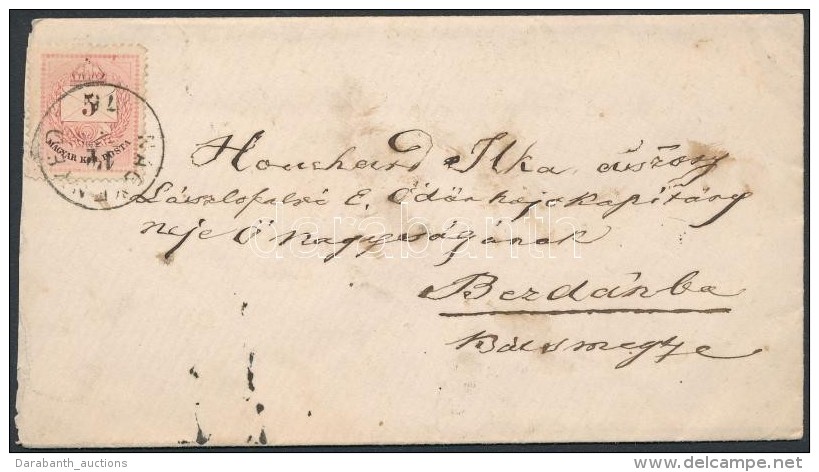 5
MAGYAR KIR. POSTA
76
Houchard Ilka úrszony
Lászlofalvi E. Ödön hajokapitány
neje Ő Nagyságának
Bezdánba
Bácsmegye
darabanth
Darabanth_auctions
delcampe.net